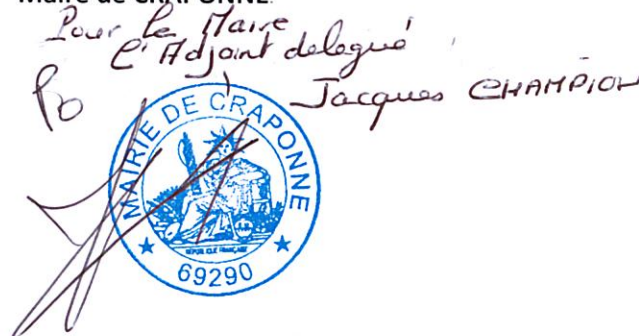 Maire de CRAPONNE
Pour le Maire
L'Adjoint delegué
Po Jacques CHAMPION
MAIRIE DE CRAPONNE
RÉPUBLIQUE FRANÇAISE
69290